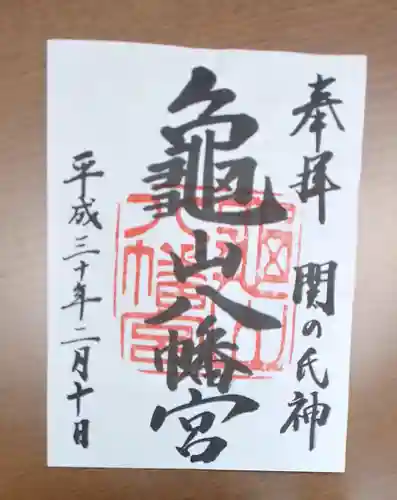 奉拝 関の氏神
龜山八幡宮
龜山八幡宮
平成三十年二月十日